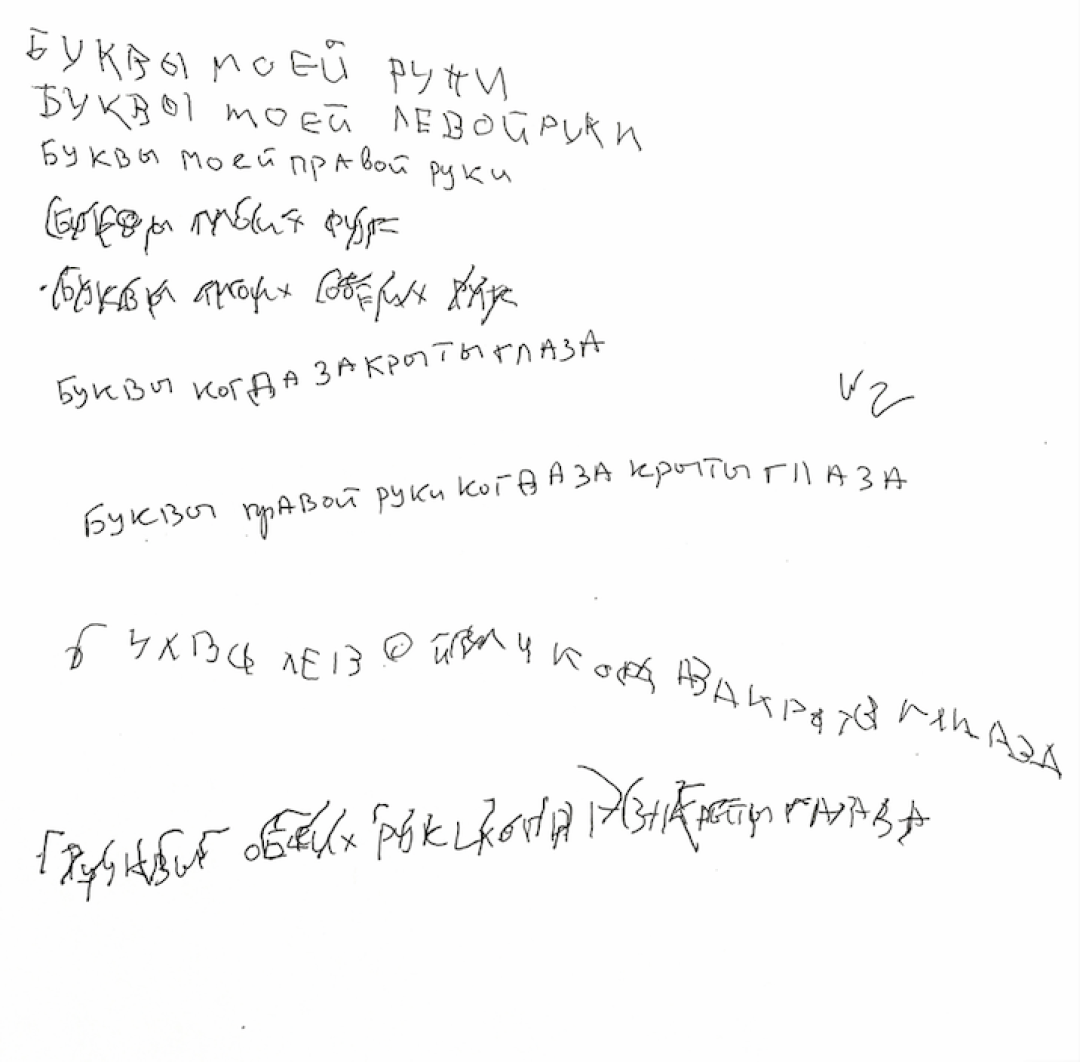 БУКВЫ МОЕЙ РУКИ
БУКВЫ МОЕЙ ЛЕВОЙ РУКИ
БУКВЫ МОЕЙ ПРАВОЙ РУКИ
БУКВЫ МОИХ РУК
БУКВЫ МОИХ ОБЕИХ РУК
БУКВЫ КОГДА ЗАКРЫТЫ ГЛАЗА
БУКВЫ ПРАВОЙ РУКИ КОГДА ЗАКРЫТЫ ГЛАЗА
БУКВЫ ЛЕВОЙ КОГДА ЗАКРЫТЫ ГЛАЗА
БУКВЫ ОБЕИХ РУК КОГДА ЗАКРЫТЫ ГЛАЗА